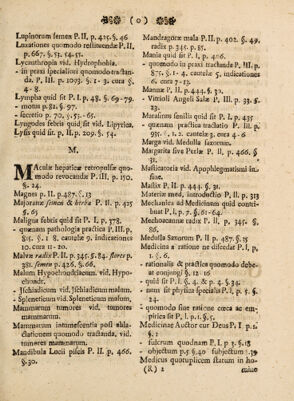 ( o )
Lupinorum semen P. II, p. 425. §. 46
Luxationes quomodo restituendæ P. II.
p. 667. §. 53. 54-55.
Lycanthropia vid. Hydrophobia.
- in praxi specialiori quomodo tractan-
da, P, III, p. 1093. §. 1-3. cura §.
4-8
Lympha quid sit P. I, p. 48. §. 69-79.
- motus p. 81. §. 97.
- secretio p. 70. §. 53.-65.
Lyngodes febris quid sit vid. Lipyrica.
Lysis quid sit p. II, p. 209. §. 54.
M.
MAculæ hepaticæ retropulsæ quo-
modo revocandæ P. III, p. 150.
§. 24.
Magnes p. II. p. 487. §. 13
Majoranæ semen & herba P. II. p. 425
§. 65
Maligna febris quid sit P. I, p. 378.
- quænam pathologia practica P. III. p,
815. §. 1 8. cautelæ 9. indicationes
10. cura 11-20.
Malva radix P. II. p. 345. §. 84. flores p.
381. semen p. 426. §. 66.
Malum Hypochondriacum, vid. Hypo-
chondr.
- Jschiadicum vid. Jschiadicum malum.
- Spleneticum vid. Spleneticum malum.
Mammarum tumores vid. tumores
mammarum.
Mammarum intumescentia post abla-
ctationem quomodo tractanda, vid.
tumores mammarum.
Mandibula Lucii piscis P. II. p, 466.
§. 30.
Mandragoræ mala P. II. p. 402. §. 49.
radix p. 345. p. 85.
Mania quid sit P. I, p. 406.
- quomodo in praxi tractanda P. III. p.
875. §. 1-4. cautelæ 5, indicationes
6. cura 7-13.
Mannæ P. II, p. 444. §. 32.
- Vitrioli Angeli Salæ P, III. p. 33. §.
23.
Marasmus senilis quid sit P. I, p. 435
- quænam practica tractatio P. III. p.
935. §. 1. 2. cautelæ 3. cura 4-6
Marga vid. Medulla saxorum.
Margarita sive Perlæ P. II, p. 466. §
31.
Masticatoria vid. Apophlegmatismi in-
fist.
Mastix P. II. p. 444. §. 31.
Materiæ med, introductio P. II, p. 313
Mechanica ad Medicinam quid contri-
buat P, I, p. 7. §. 61-64.
Mechoacannæ radix P. II, p, 345. §.
86
Medulla Saxorum P. II p. 487. §. 15
Medicina a ratione ne discedat P. I, p.
I, §.
- rationalis & practica quomodo debe-
at conjungi §. 12. 16
- quid sit P. I. §. 4. & p. 4. §. 34.
- num sit physica specialis P. I, p. 5. §.
42.
- quomodo sine ratione cœca ac em-
pirica sit §. 4, P, I, p. 1. §. 5.
Medicinæ Auctor cur Deus P. I p. 2.
§. 1
- fulcrum quodnam P. I, p 3. §.
- objectum p. 5 §. 40 subjectum §. 39
Medicus quotuplicem statum in ho-
(R) 2
mine